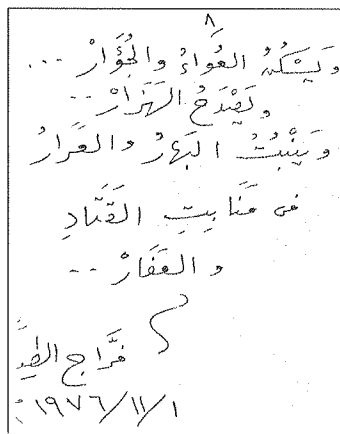 ٨
وَيَسْكُنُ العُواءُ والجُؤَارْ ...
وَيَصْدَحُ الهَزَارْ ..
وَيَنْبُتُ البَهَارُ والعَرارُ
في مَنَابِتِ القَتَادِ
والقَفَارْ ..
فرَّاج الطيِّ
١٩٧٦/١١/١